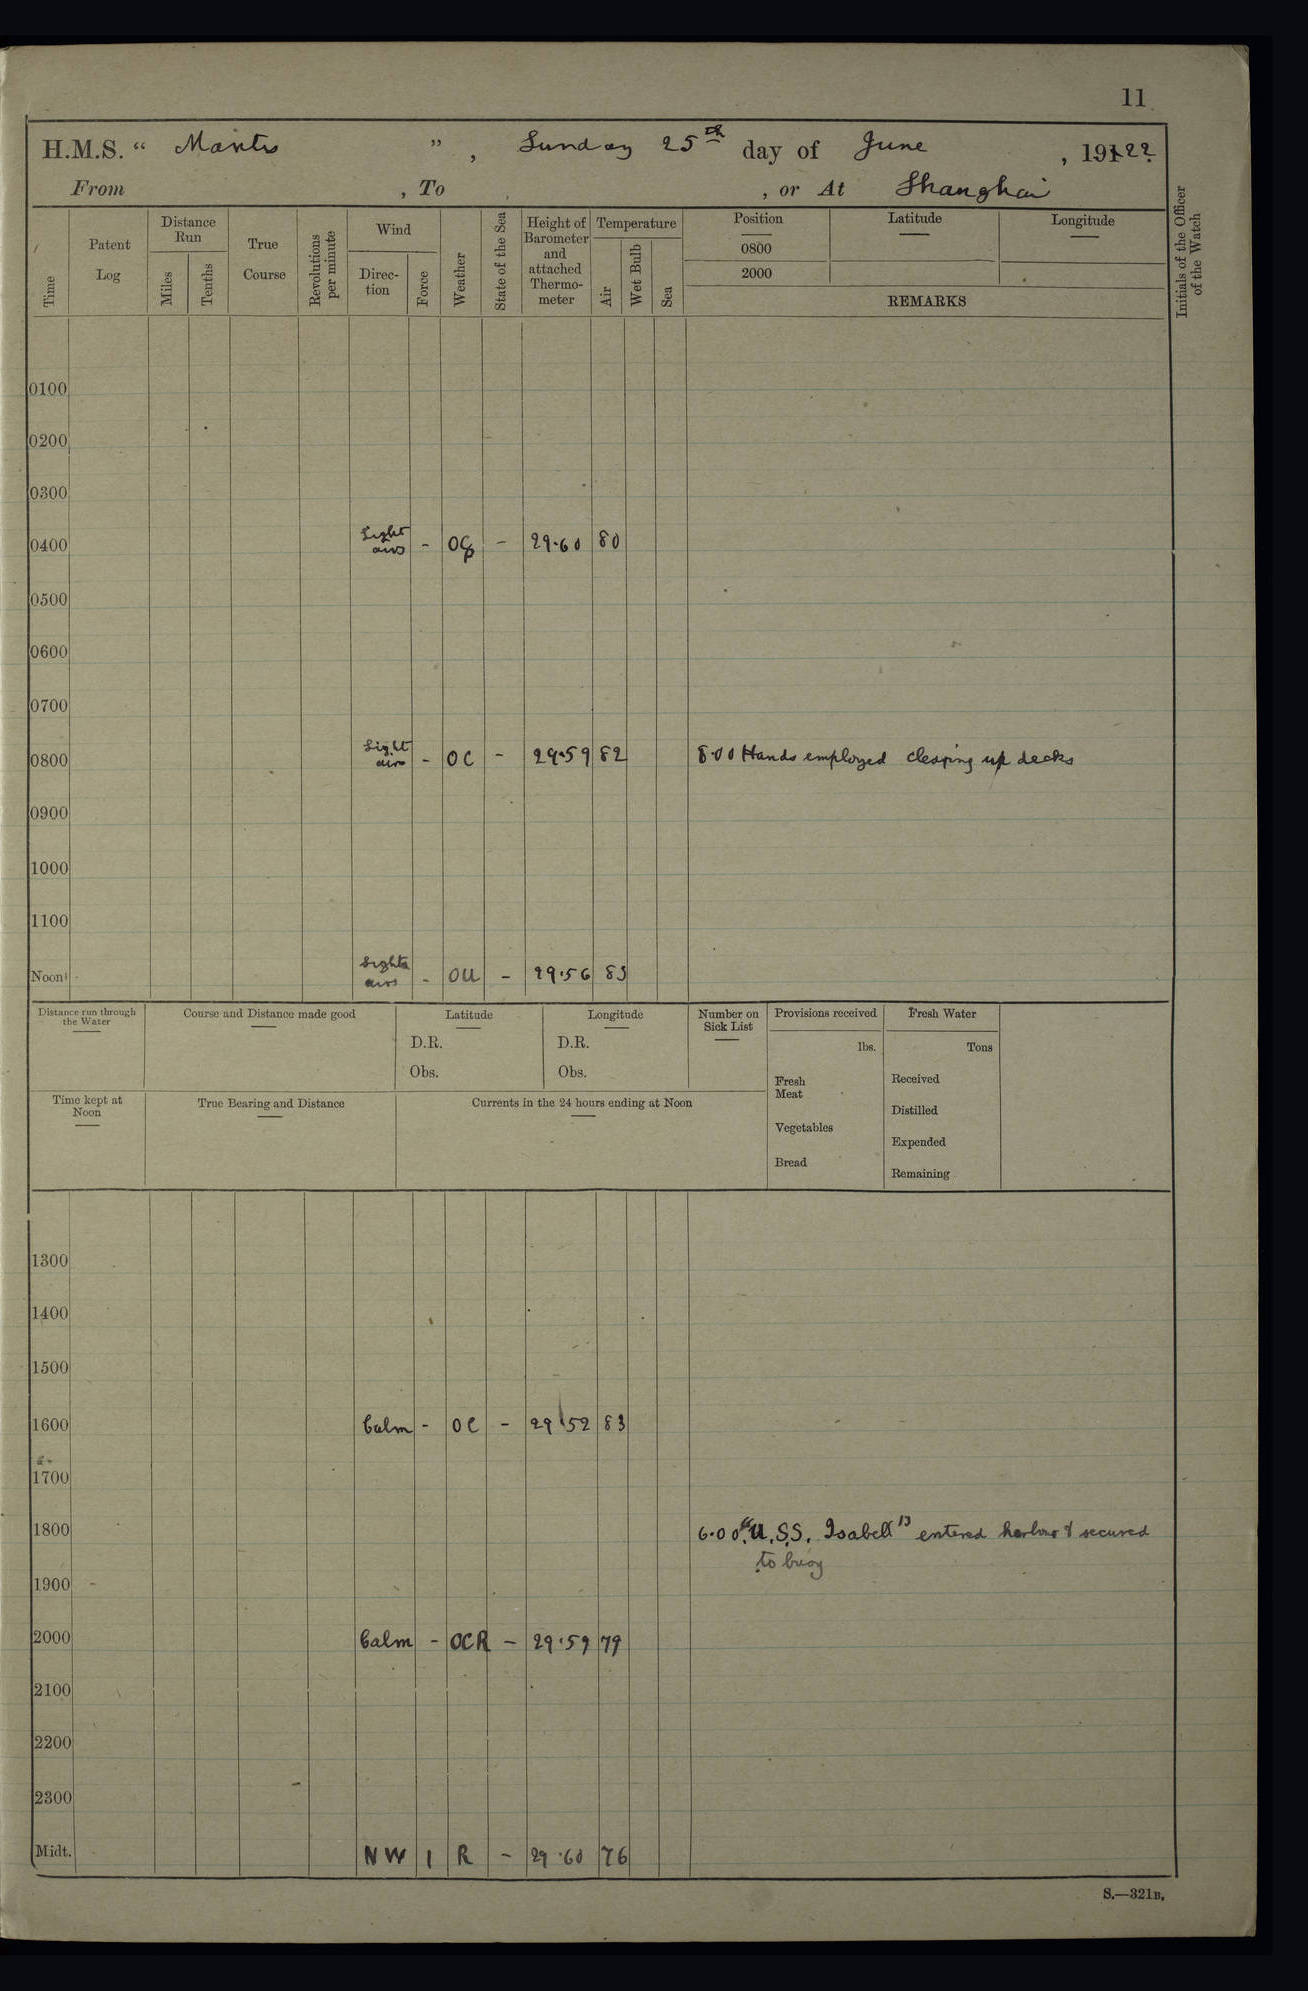 11
H.M.S. “ Mantis ” , Sunday 25th day of June , 1922
From , To , or At Shanghai
Time Patent Log Distance Run Miles Tenths True Course Revolutions per minute Wind Direc-tion Force Weather State of the Sea Height of Barometer and attached Thermo-meter Temperature Air Wet Bulb Sea Position Latitude Longitude Initials of the Officer of the Watch
0800
2000
REMARKS
0100
0200
0300
0400 Light airs - - 29.60 80
0500
0600
0700
0800 Light airs - OC - 29.59 82 8.00 Hands employed clearing up decks
0900
1000
1100
Noon Light airs - OU - 29.56 83
Distance run through the Water Course and Distance made good Latitude Longitude Number on Sick List Provisions received Fresh Water
D.R. D.R. lbs. Tons
Obs. Obs. Fresh Meat Received
Time kept at Noon True Bearing and Distance Currents in the 24 hours ending at Noon Distilled
Vegetables Expended
Bread Remaining
1300
1400
1500
1600 Calm - OC - 29.52 83
1700
1800 6.00 "U.S.S. Isabell" entered harbour & secured
to buoy
1900
2000 Calm - OCR - 29.59 79
2100
2200
2300
Midt. NW 1 R - 29.60 76
S.—321B.